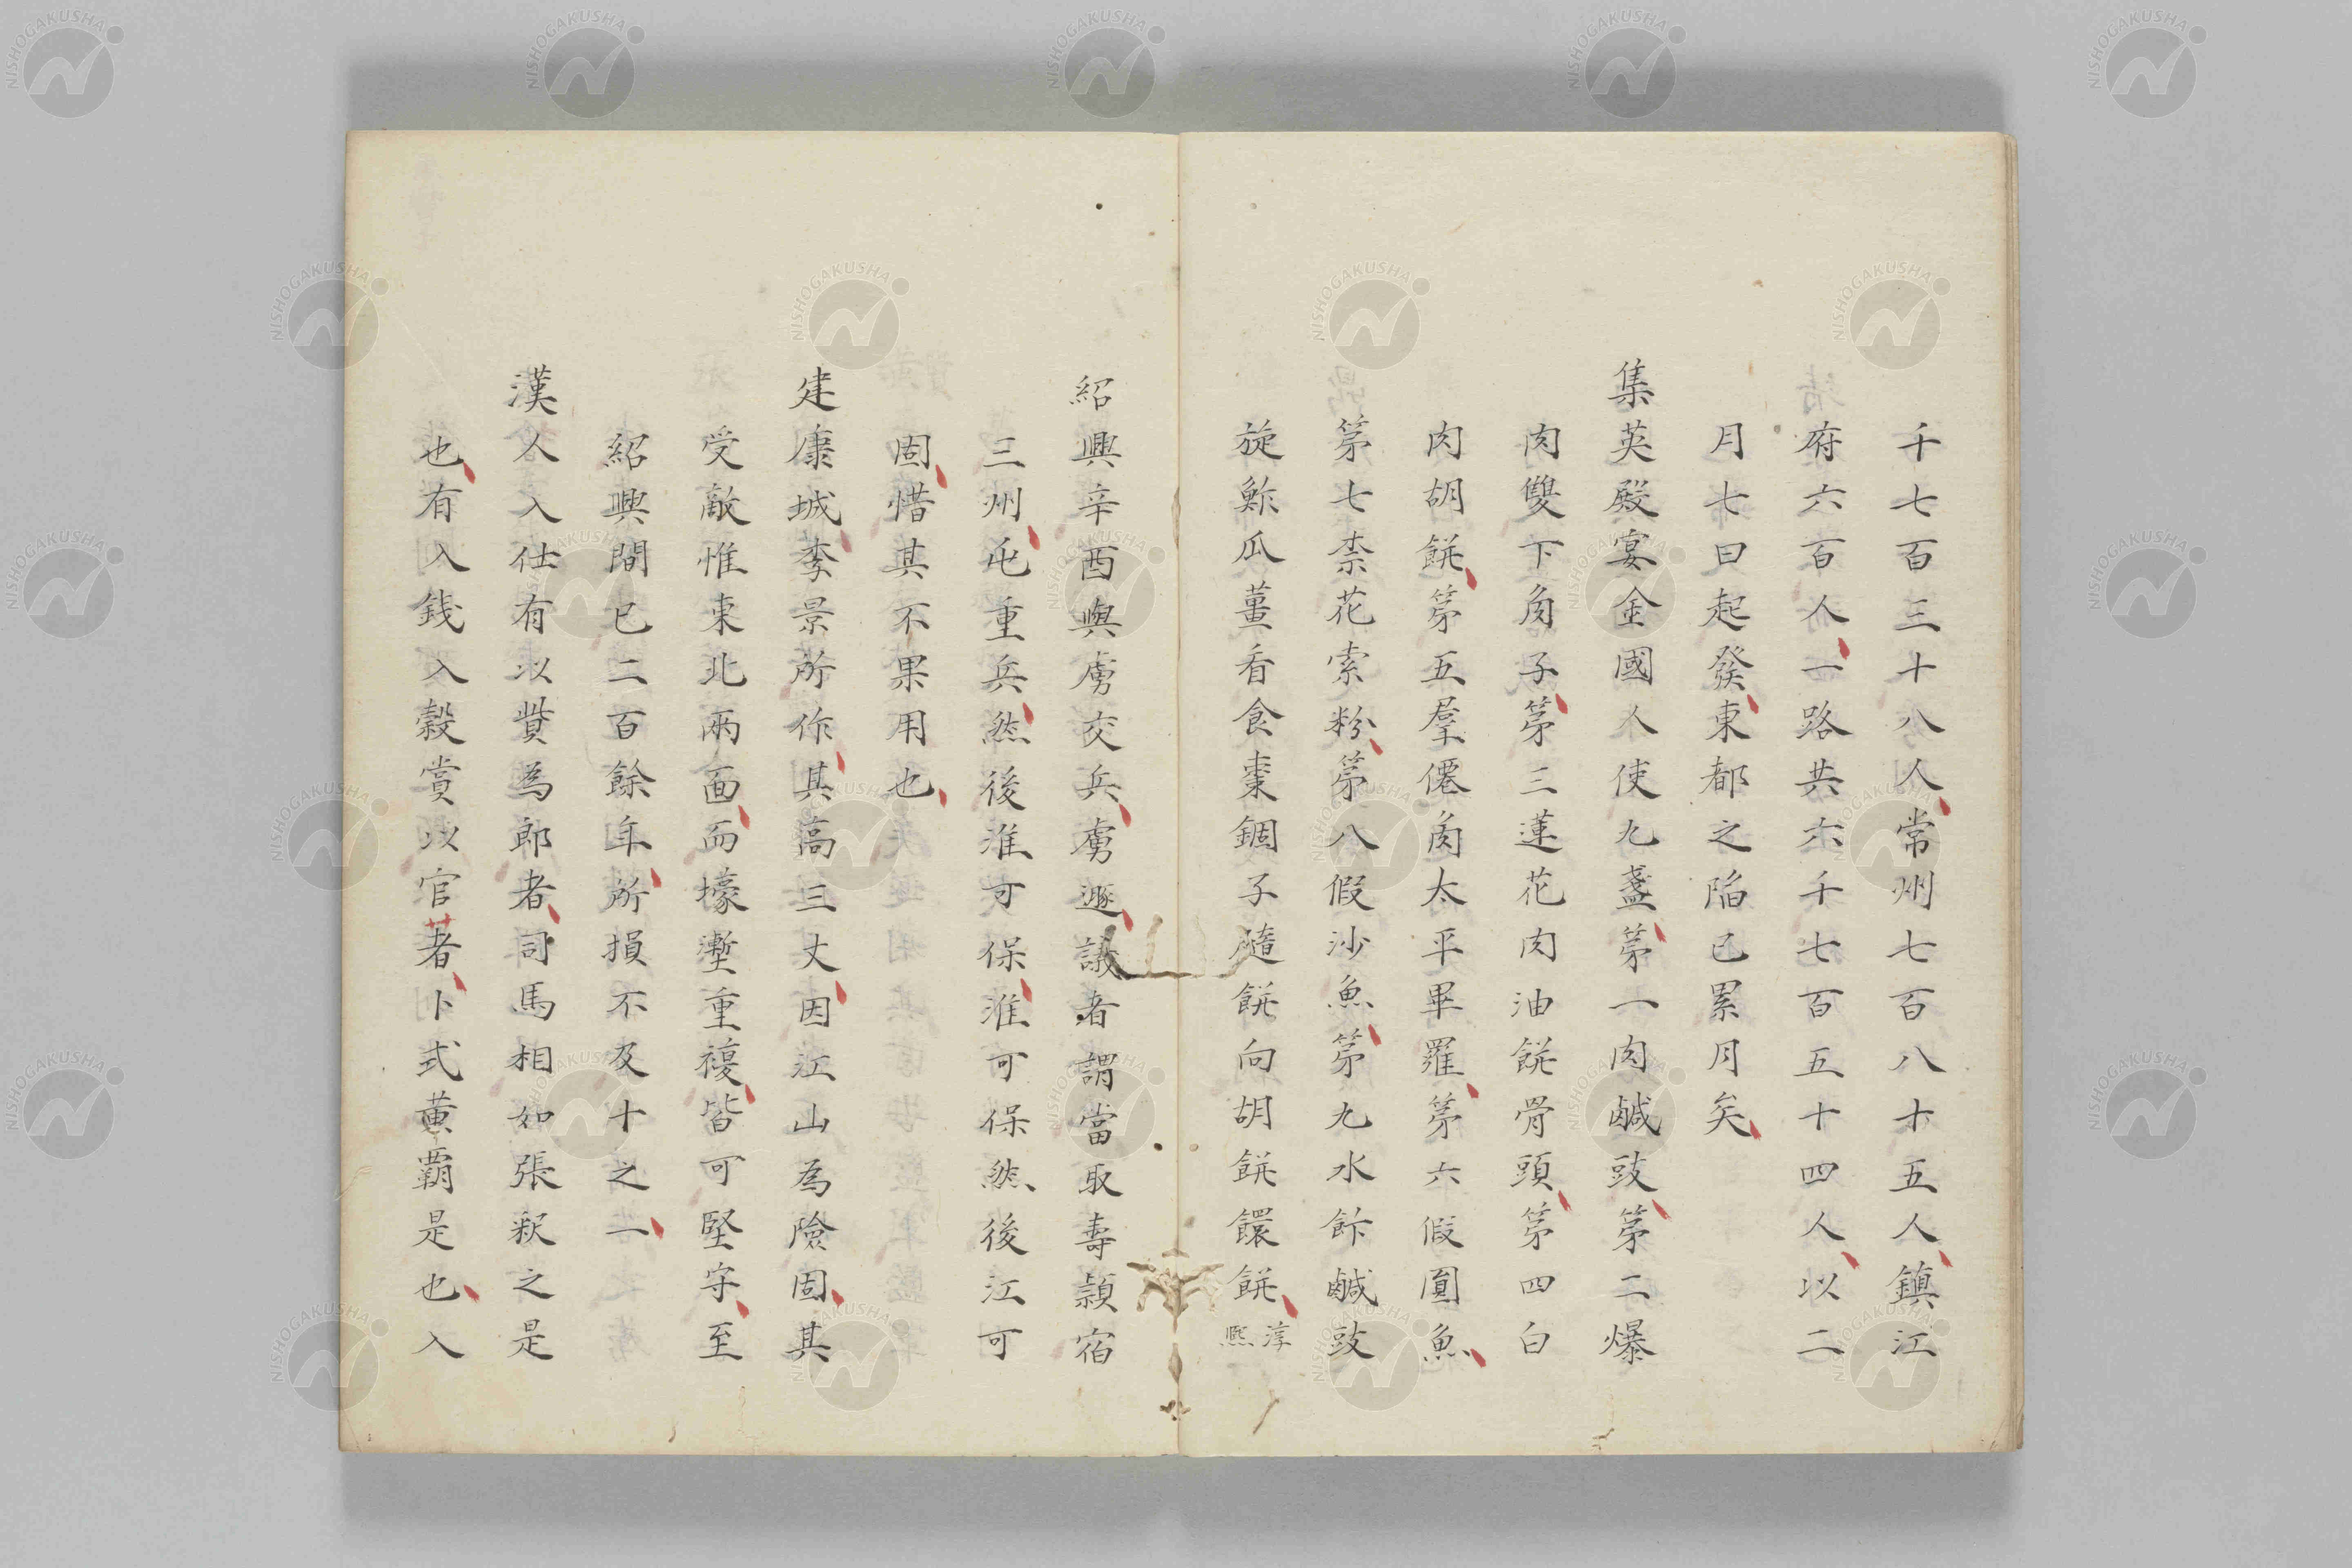 千七百三十八人常州七百八十五人鎮江
府六百人一路共六千七百五十四人以二
月七日起發東都之陷已累月矣
集英殿宴金國人使九盞第一肉鹹豉第二爆
肉雙下角子第三蓮花肉油餅骨頭第四白
肉胡餅第五羣僊炙太平畢羅第六假圎魚
第七柰花索粉第八假沙魚第九水飰鹹豉
旋鮓瓜薑看食棗錮子隨餅向胡餅饌餅淳熙
紹興辛酉與虜交兵虜遯議者謂當取壽潁宿
三州屯重兵然後淮可保淮可保然後江可
固惜其不果用也
建康城李景所作其高三丈因江山為險固其
受敵惟東北兩面而壕塹重複皆可堅守至
紹興間已二百餘年所損不及十之一
漢人入仕有以貲為郎者司馬相如張釈之是
也有入錢入穀賞以官者卜式黄霸是也入
NISHOGAKUSHA